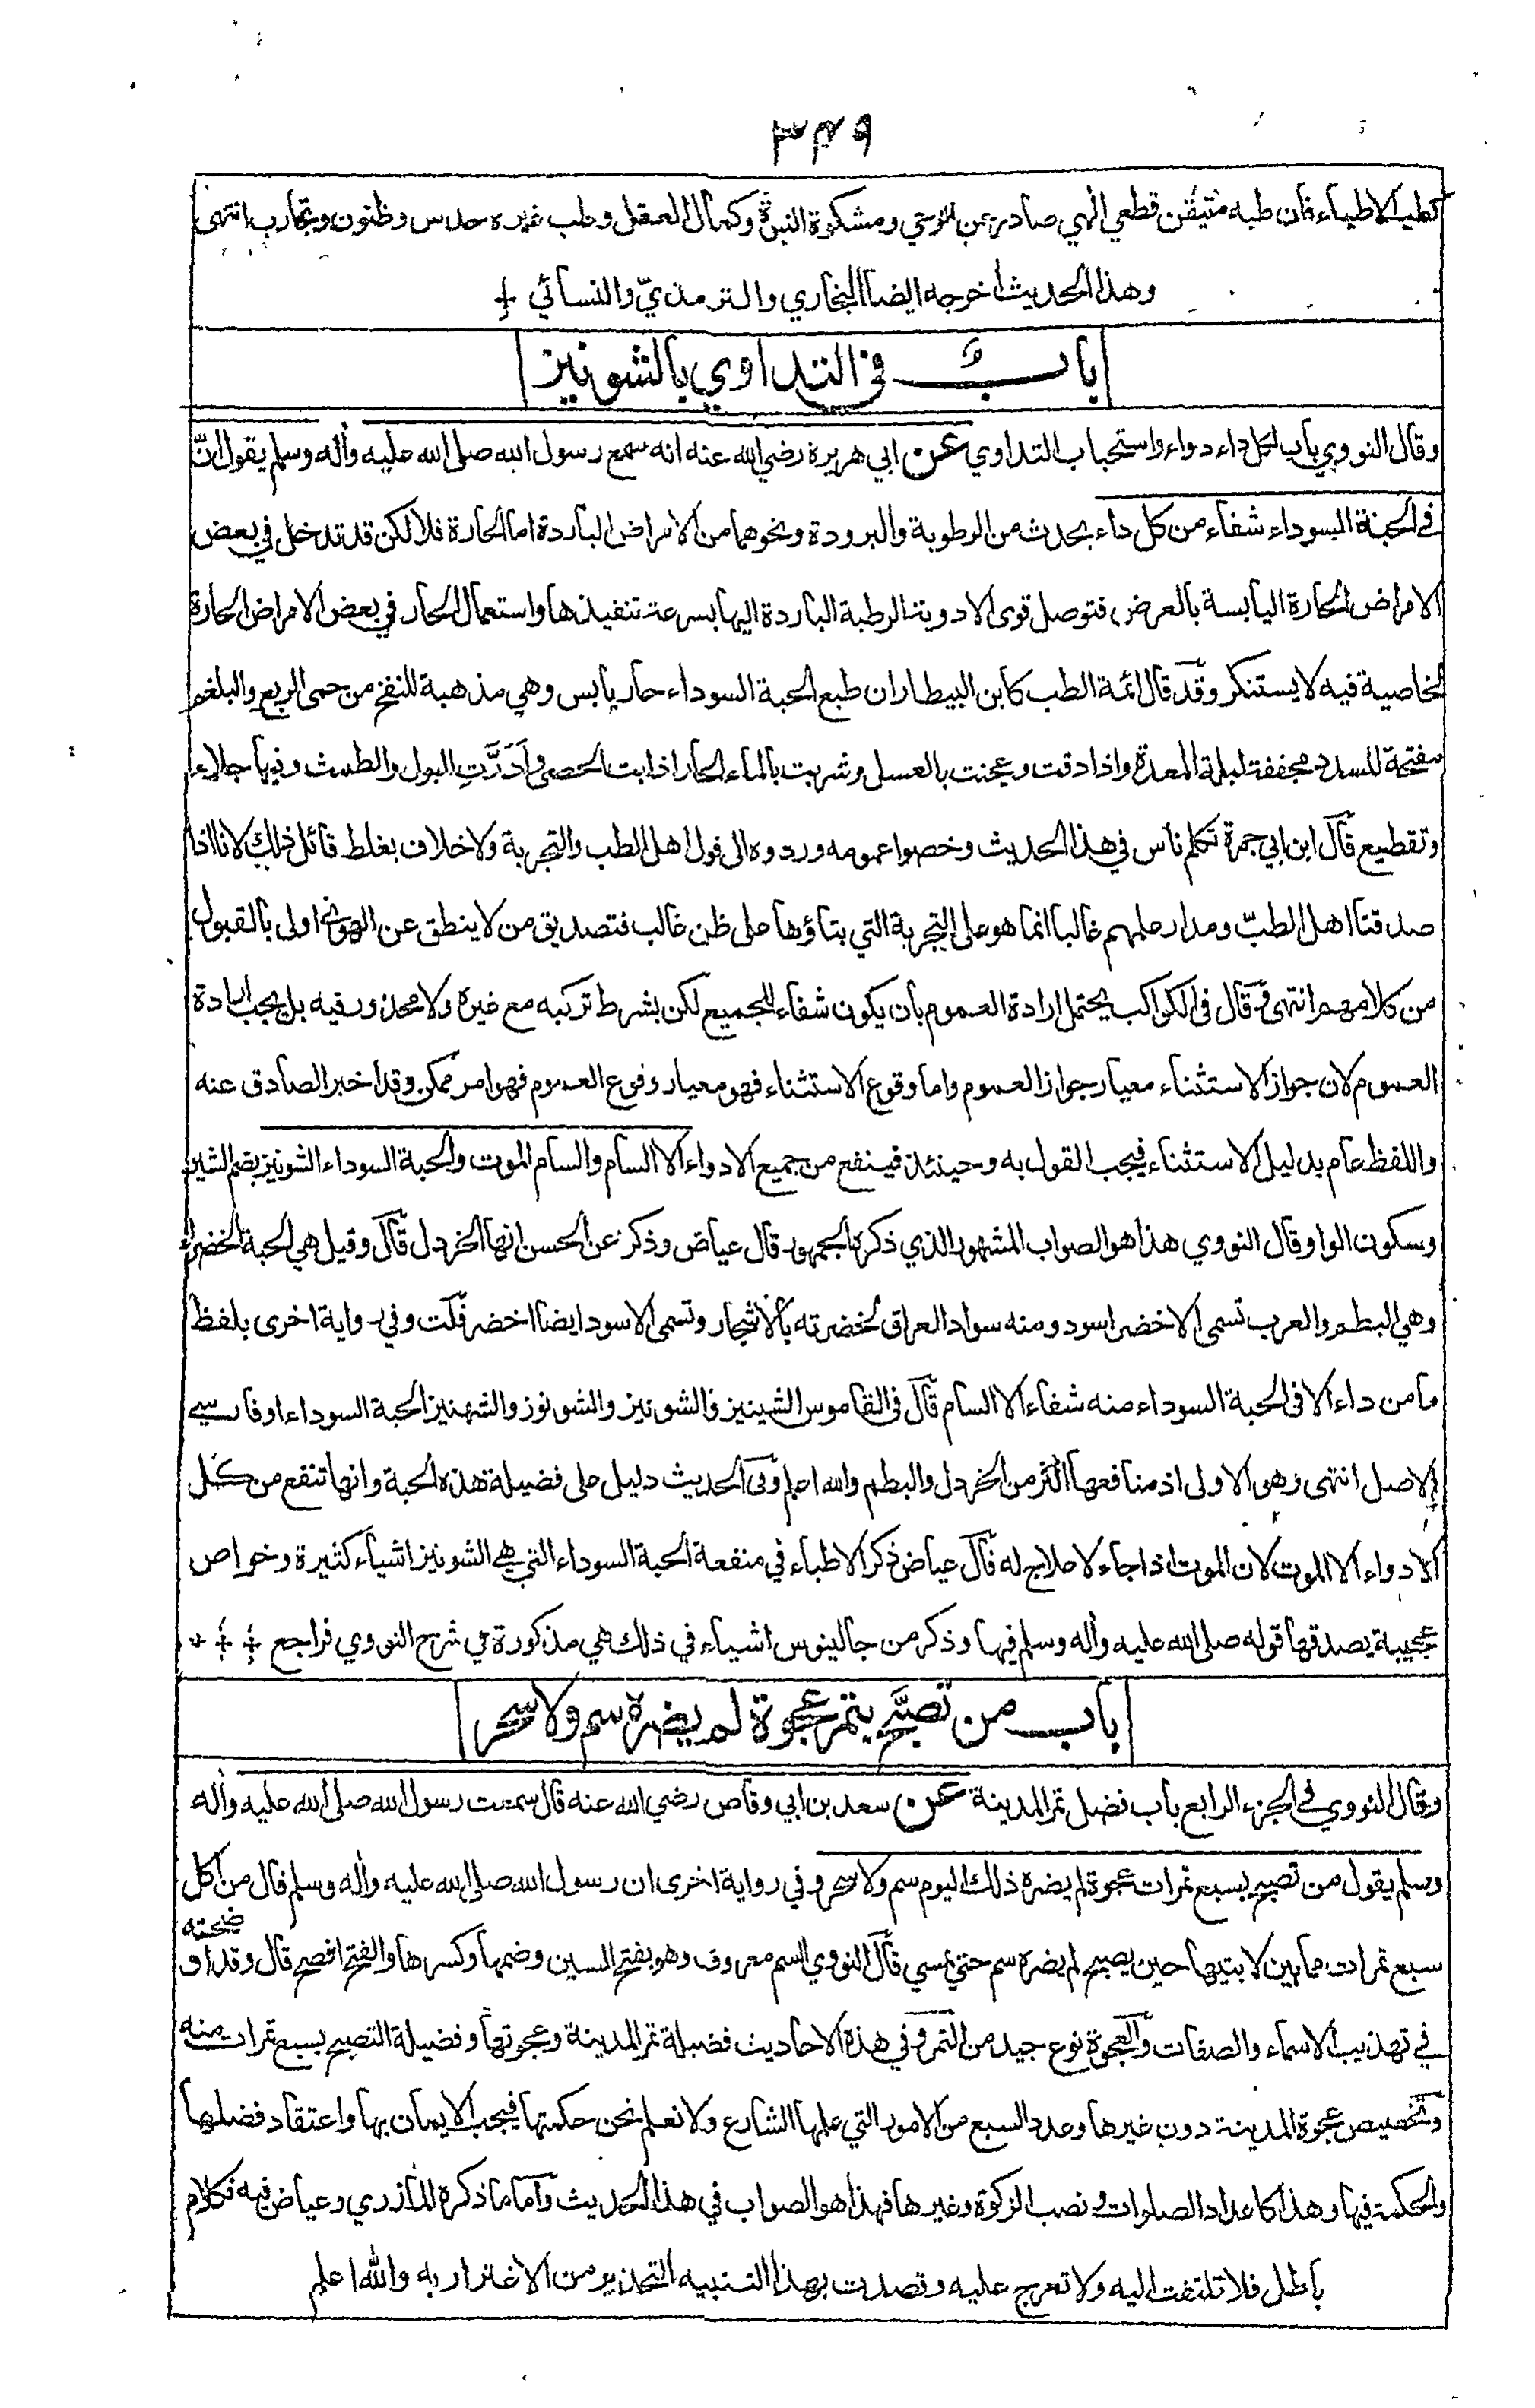 ٣٤٩
كطب الاطباء فان طبه متيقن قطعي الٰهي صادر عن الوحي ومشكوة النبوة وكمال العقل وطب غيره حدس وظنون وتجارب انتهى
وهذا الحديث اخرجه ايضا البخاري والترمذيّ والنسائي
باب في التداوي بالشونيز
وقال النووي باب لكل داء دواء واستحباب التداوي عن ابي هريرة رضي الله عنه انه سمع رسول الله صلى الله عليه وأله وسلم يقول انّ
في الحبة السوداء شفاء من كل داء يحدث من الرطوبة والبرودة ونحوهما من الامراض الباردة اما الحارة فلا لكن قد تدخل في بعض
الامراض الحارة اليابسة بالعرض فتوصل قوى الادوية الرطبة الباردة اليها بسرعة تنفيذها واستعمال الحار في بعض الامراض الحارة
لخاصية فيه لا يستنكر وقد قال ائمة الطب كابن البيطار ان طبع الحبة السوداء حار يابس وهي مذهبة للنفخ من حمى الربع والبلغم
مفتحة للسدد مجففة لبلة المعدة واذا دقت وعجنت بالعسل وشربت بالماء الحار اذابت الحصى وأَدَرَّتِ البول والطمث وفيها جلاء
وتقطيع قال ابن ابي جمرة تكلم ناس في هذا الحديث وخصوا عمومه وردوه الى قول اهل الطب والتجربة ولا خلاف بغلط قائل ذلك لانا اذا
صدقنا اهل الطبّ ومدار علمهم غالبا انما هو على التجربة التي بناؤها على ظن غالب فتصديق من لا ينطق عن الهوى اولى بالقبول
من كلامهم انتهى وقال في الكواكب يحتمل ارادة العموم بان يكون شفاء للجميع لكن بشرط تركبه مع غيره ولا محذور فيه بل يجب ارادة
العموم لان جواز الاستثناء معيار جواز العموم واما وقوع الاستثناء فهو معيار وقوع العموم فهو امر ممكن وقد اخبر الصادق عنه
واللفظ عام بدليل الاستثناء فيجب القول به وحينئذ فينفع من جميع الادواء الا السام والسام الموت والحبة السوداء الشونيز بضم الشين
وسكون الواو قال النووي هذا هو الصواب المشهور الذي ذكره الجمهور قال عياض وذكر عن الحسن انها الخردل قال وقيل هي الحبة الخضراء
وهي البطم والعرب تسمى الاخضر اسود ومنه سواد العراق لخضرته بالاشجار وتسمى الاسود ايضا اخضر قلت وفي رواية اخرى بلفظ
ما من داء الا في الحبة السوداء منه شفاء الا السام قال في القاموس الشينيز والشونيز والشونوز والشهنيز الحبة السوداء او فارسي
الاصل انتهى وهى الاولى اذ منافعها اكثر من الخردل والبطم والله اعلم وفى الحديث دليل على فضيلة هذه الحبة وانها تنفع من كل
الادواء الا الموت لان الموت اذا جاء لا علاج له قال عياض ذكر الاطباء في منفعة الحبة السوداء التي هي الشونيز اشياء كثيرة وخواص
عجيبة يصدقها قوله صلى الله عليه وأله وسلم فيها وذكر من جالينوس اشياء في ذلك هي مذكورة في شرح النووي فراجع
باب من تصبَّح بتمر عجوة لم يضره سم ولا سحر
وقال النووي في الجزء الرابع باب فضل تمر المدينة عن سعد بن ابي وقاص رضي الله عنه قال سمعت رسول الله صلى الله عليه وأله
وسلم يقول من تصبح بسبع تمرات عجوة لم يضره ذلك اليوم سم ولا سحر وفي رواية اخرى ان رسول الله صلى الله عليه وأله وسلم قال من اكل
سبع تمرات مما بين لابتيها حين يصبح لم يضره سم حتي يمسي قال النووي السم معروف وهو بفتح السين وضمها وكسرها والفتح افصح قال وقد اوضحته
في تهذيب الاسماء والصفات والعجوة نوع جيد من التمر وفي هذه الاحاديث فضيلة تمر المدينة وعجوتها وفضيلة التصبح بسبع تمرات منه
وتخصيص عجوة المدينة دون غيرها وعدد السبع من الامور التي علمها الشارع ولا نعلم نحن حكمتها فيجب الايمان بها واعتقاد فضلها
والحكمة فيها وهذا كاعداد الصلوات ونصب الزكوة وغيرها فهذا هو الصواب في هذا الحديث وأما ما ذكره المازري وعياض فيه فكلام
باطل فلا تلتفت اليه ولا تعرج عليه وقصدت بهذا التنبيه التحذير من الاغترار به والله اعلم